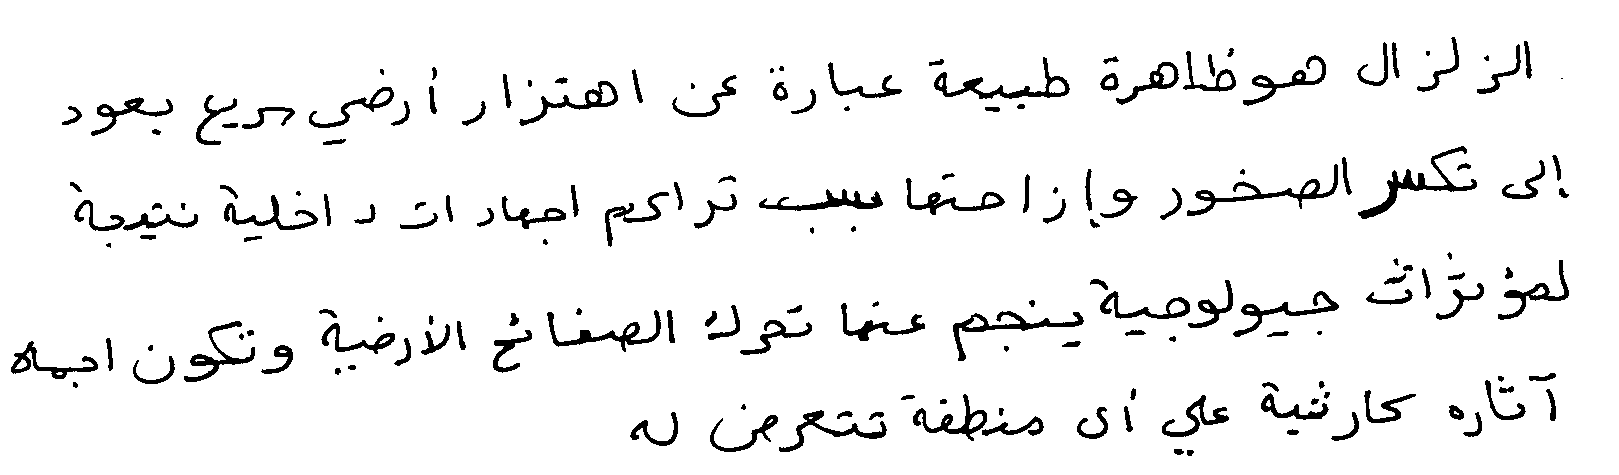 الزلزال هو ظاهرة طبيعة عبارة عن اهتزاز أرضي سريع يعود
إلى تكسر الصخور وإزاحتها بسبب تراكم اجهادات داخلية نتيجة
لمؤثرات جيولوجية ينجم عنها تحرك الصفائح الأرضية وتكون
آثاره كارثية علي أى منطقة تتعرض له